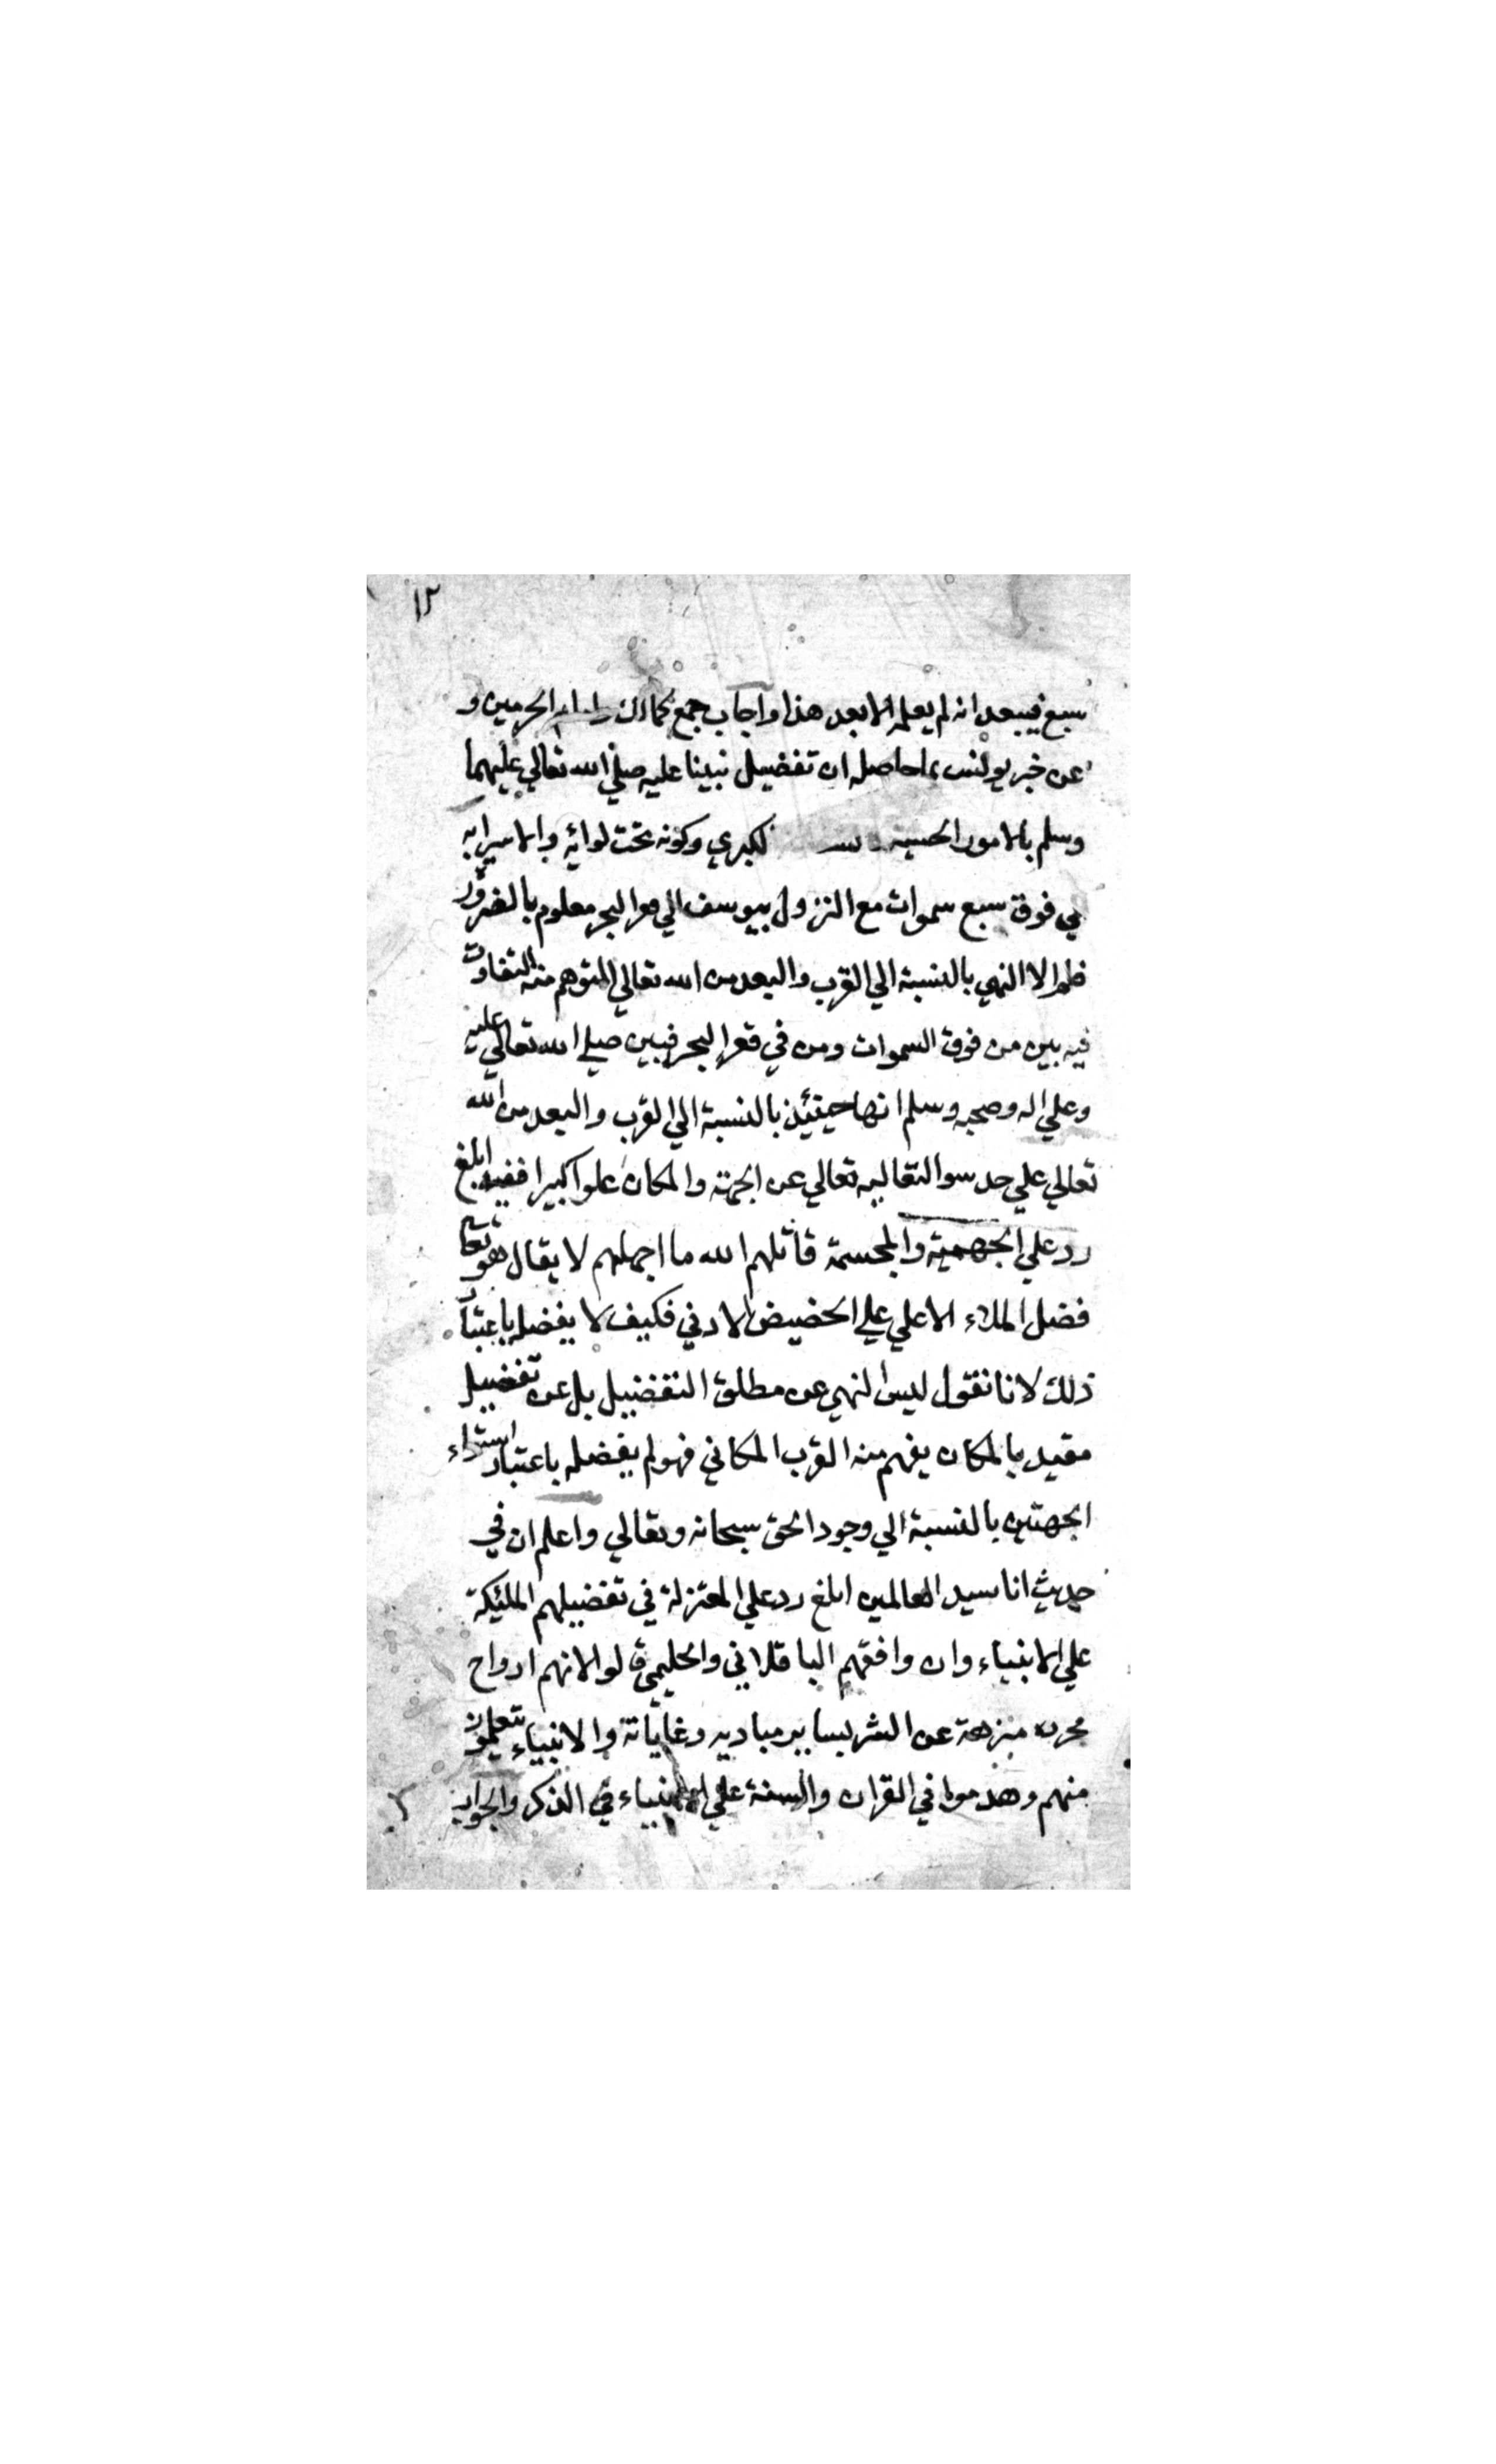 ١٢
سبع فيبعد انه لم يعلمه الا بعد هذا واجاب جمع كمالك وامام الحرمين و
عن خبر يونس بما حاصله ان تفضيل نبينا عليه صلي الله تعالي عليهما
وسلم بالامور الحسية لكبري وكونه تحت لوائه والاسرا به
الي فوق سبع سموات مع النزول بيوسف الي قعر البحر معلوم بالضرور
فلم الا النهي بالنسبة الي القرب والبعد من الله تعالي المتوهم منه التفاوت
فيه بين من فوق السموات ومن في قعر البحر فبين صلي الله تعالي عليه
وعلي اله وصحبه وسلم انها حينئذ بالنسبة الي القرب والبعد من الله
تعالي علي حد سوا لتعاليه تعالي عن الجهة والمكان علوا كبيرا ففيه ابلغ
رد علي الجهمية والمجسمة قاتلهم الله ما اجهلهم لا يقال هو تعا
فضل الملاء الاعلي علي الحضيض الادني فكيف لا يفضله باعتبار
ذلك لانا نقول ليس النهي عن مطلق التفضيل بل عن تفضيل
مقيد بالمكان يفهم منه القرب المكاني فهو لم يفضله باعتبار استواء
الجهتين بالنسبة الي وجود الحق سبحانه وتعالي واعلم ان في
حديث انا سيد العالمين ابلغ رد علي المعتزلة في تفضيلهم الملئكة
علي الانبياء وان وافقهم الباقلاني والحليمي قالوا لانهم ارواح
مجردة منزهة عن الشر بساير مباديه وغاياته والانبياء يتعلمون
منهم وقدموا في القران والسنة علي الانبياء في الذكر والجواب